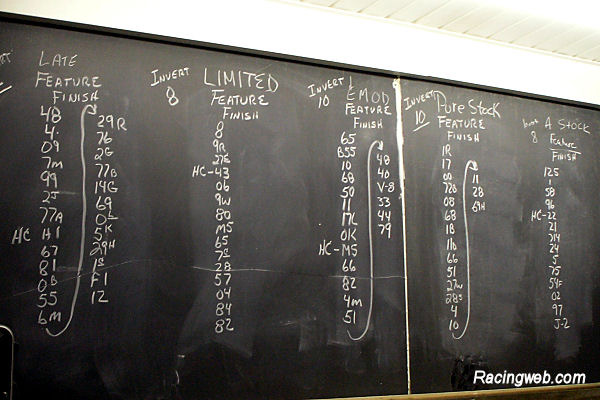 LATE
FEATURE
FINISH
48
4
09
7M
99
2J
77A
HC H1
67
81
0B
55
6M
29R
76
2G
77B
14G
69
5K
29H
1S
F1
12
INVERT
8
LIMITED
FEATURE
FINISH
8
9R
27E
HC-43
06
9W
80
M5
65
7S
2B
57
04
84
82
INVERT
10
EMOD
FEATURE
FINISH
65
B55
10
68
50
11
17L
0K
HC-M5
66
82
4M
51
48
40
V-8
33
44
79
INVERT
10
Pure Stock
FEATURE
FINISH
1R
17
00
72B
08
68
1B
11b
66
51
27W
28S
4
10
11
2B
69H
8
A STOCK
Feature
FINISH
125
1
58
96
HC-22
21
714
24
5
75
54F
02
97
J-2
Racingweb.com